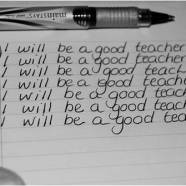 I will be a good teacher
I will be a good teacher
I will be a good teach
I will be a good teache
I will be a good teach
I will be a good teac
I will be a good tea